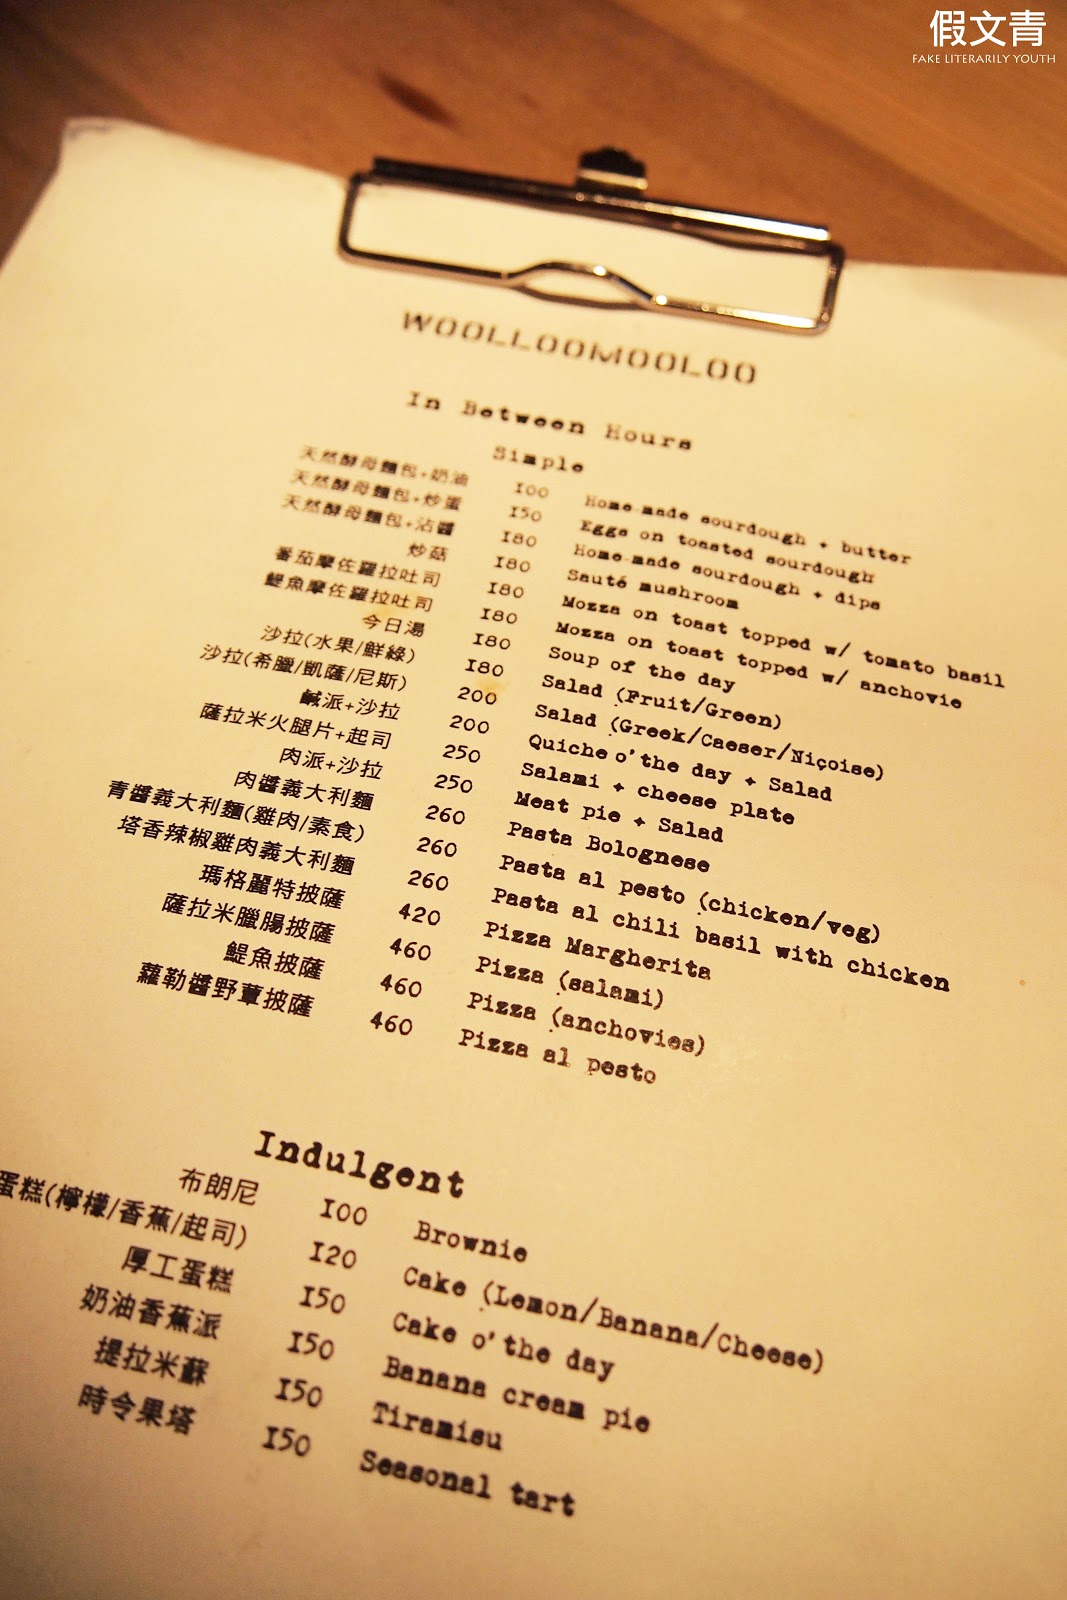 假文青
FAKE LITERARILY YOUTH
WOOLLOOMOOLOO
In Between Hours
Simple
天然酵母麵包+奶油 100 Home-made sourdough + butter
天然酵母麵包+炒蛋 150 Eggs on toasted sourdough
天然酵母麵包+沾醬 180 Home-made sourdough + dips
炒菇 180 Sauté mushroom
番茄摩佐羅拉吐司 180 Mozza on toast topped w/ tomato basil
鯷魚摩佐羅拉吐司 180 Mozza on toast topped w/ anchovie
今日湯 180 Soup of the day
沙拉(水果/鮮綠) 180 Salad (Fruit/Green)
沙拉(希臘/凱薩/尼斯) 200 Salad (Greek/Caeser/Niçoise)
鹹派+沙拉 200 Quiche o'the day + Salad
薩拉米火腿片+起司 250 Salami + cheese plate
肉派+沙拉 250 Meat pie + Salad
肉醬義大利麵 260 Pasta Bolognese
青醬義大利麵(雞肉/素食) 260 Pasta al pesto (chicken/veg)
塔香辣椒雞肉義大利麵 260 Pasta al chili basil with chicken
瑪格麗特披薩 420 Pizza Margherita
薩拉米臘腸披薩 460 Pizza (salami)
鯷魚披薩 460 Pizza (anchovies)
蘿勒醬野蕈披薩 460 Pizza al pesto
Indulgent
布朗尼 100 Brownie
蛋糕(檸檬/香蕉/起司) 120 Cake (Lemon/Banana/Cheese)
厚工蛋糕 150 Cake o'the day
奶油香蕉派 150 Banana cream pie
提拉米蘇 150 Tiramisu
時令果塔 150 Seasonal tart